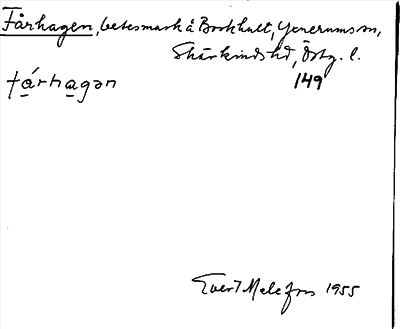 Fårhagen, betesmark å Borkhult, Yxnerums sn,
Skärkinds hd, Östg. l.
fárhagən 149
Evert Melefors 1955